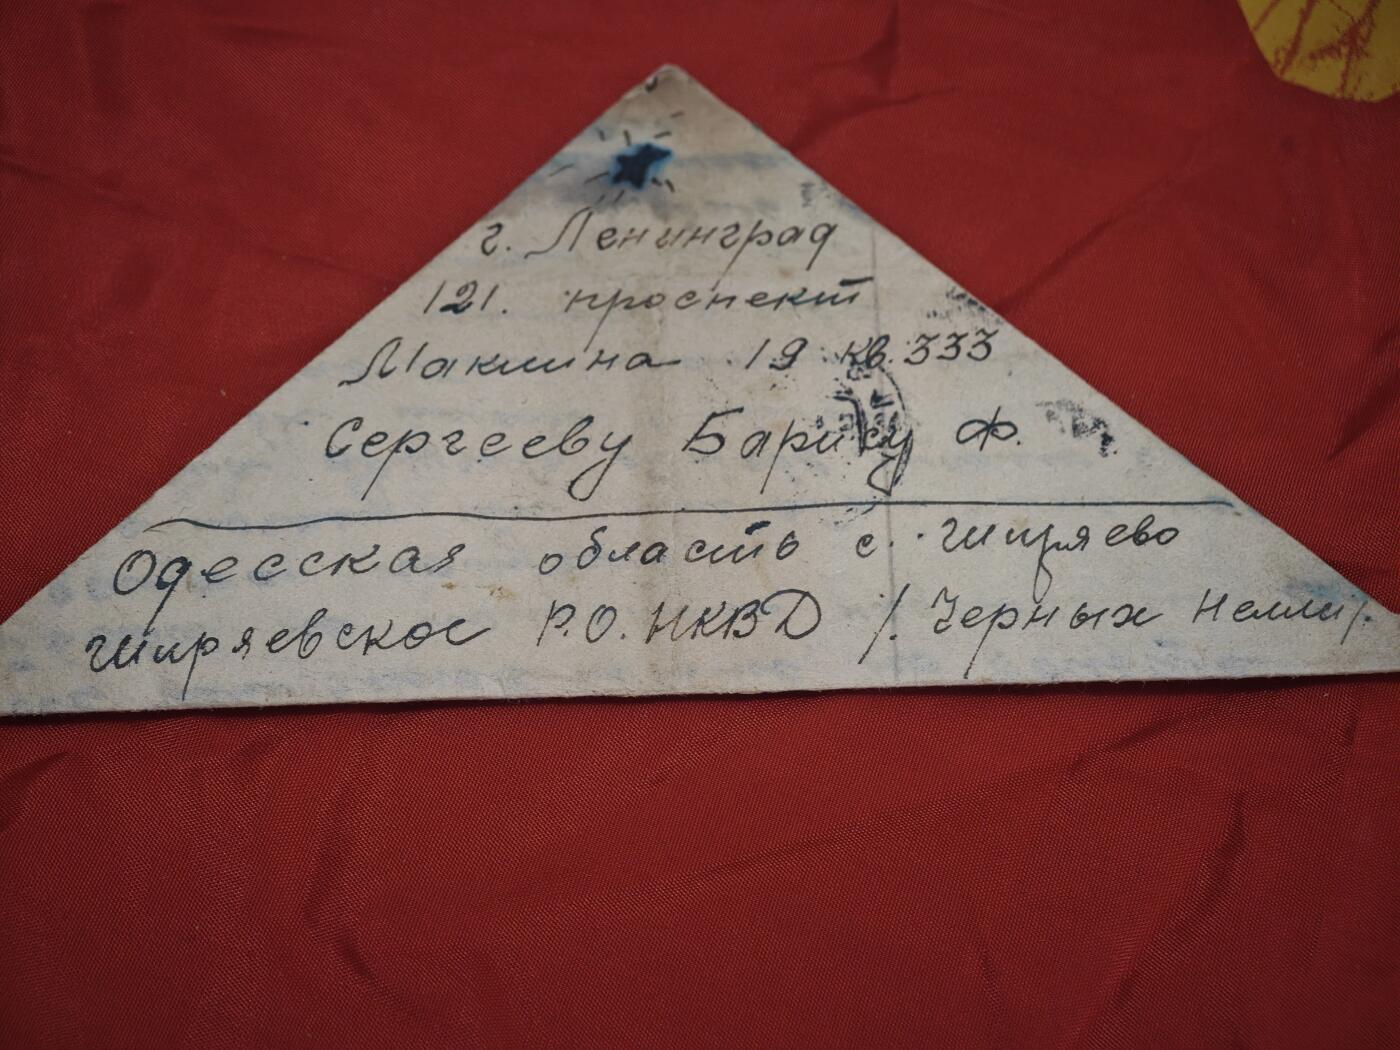 г. Ленинград
121. проспект
Маклина 19 кв. 333
Сергееву Барису Ф.
Одесская область с. Ширяево
Ширяевское Р.О. НКВД /. Черных Нелли/.